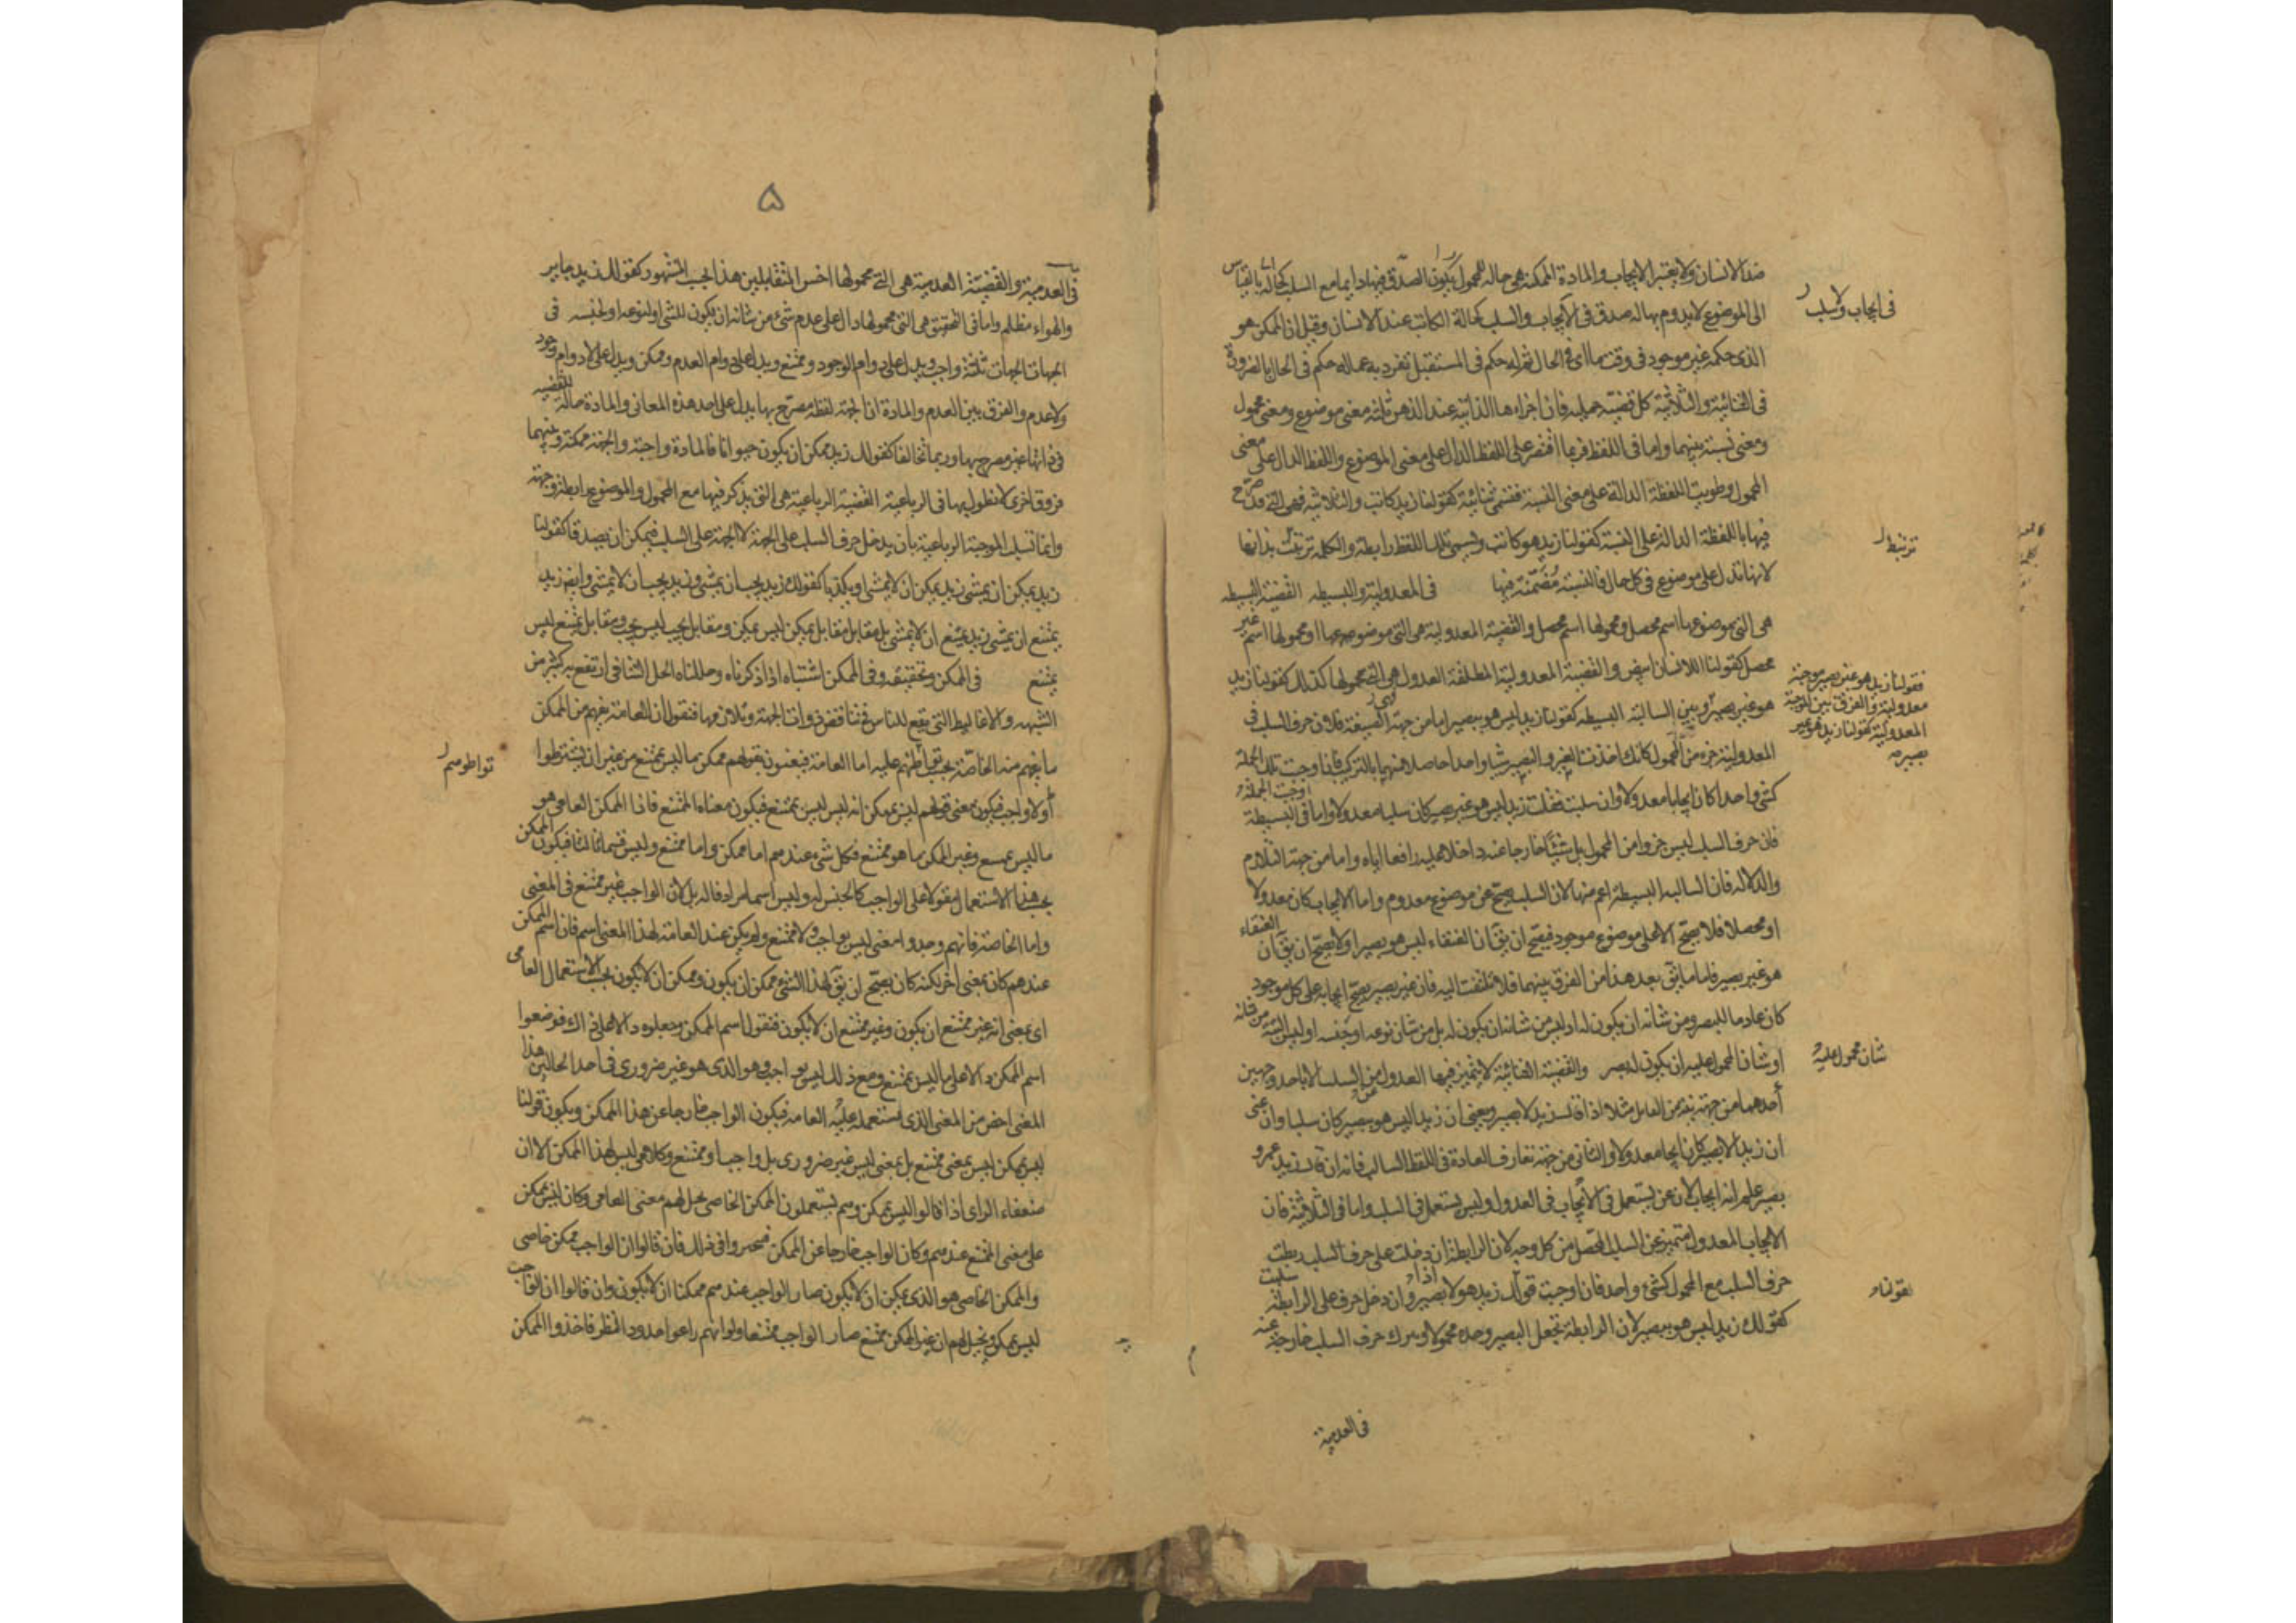 ضد الانسان ولا يعتبر الايجاب والمادة الممكنة هي حالة للمحمول يكون الصدق فيها دايما مع السلب كحالة بالقياس
الى الموضوع لا يدوم بها له صدق في الايجاب والسلب كحالة الكاتب عند الانسان وقيل ان الممكن هو
الذى حكمه غير موجود في وقت ما اى في الحال ثم له حكم في المستقبل تفرد به عما له حكم في الحال بالضرورة
في الثنائية والثلاثية كل قضية حملية فان اجزاءها الذاتية عند الذهن ثلثة معنى موضوع ومعنى محمول
ومعنى نسبة بينهما واما في اللفظ فربما اقتصر على اللفظ الدال على معنى الموضوع واللفظ الدال على معنى
المحمول وطويت اللفظة الدالة على معنى النسبة فتسمى ثنائية كقولنا زيد كاتب والثلاثية فهى التي قد صرح
فيها باللفظة الدالة على النسبة كقولنا زيد هو كاتب وتسمى تلك اللفظ رابطة والكلمة ترتبط بذاتها
لانها تدل على موضوع في كل حال فالنسبة مضمنة فيها في المعدولية والبسيطه القضية البسيطه
هى التي موضوعها اسم محصل ومحمولها اسم محصل والقضية المعدولية هى التي موضوعها او محمولها اسم غير
محصل كقولنا اللا انسان ابيض والقضية المعدولية المطلقة العدول هى التي محمولها كذلك كقولنا زيد
هو غير بصير وبين السالبة البسيطه كقولنا زيد ليس هو ببصير اما من جهة الصيغة فلان حرف السلب في
المعدولية جزء من المحمول كانك اخذت الغير والبصير شيا واحدا حاصلا منهما بالتركيب فاذا وجبت تلك الجملة
كشى واحد كان ايجابا معدولا وان سلبت فقلت زيد ليس هو غير بصير كان سلبا معدولا واما في البسيطة
فان حرف السلب ليس جزوا من المحمول بل شيئا خارجا عنه داخلا عليه رافعا اياه واما من جهة التلازم
والدلالة فان السالبة البسيطة اعم منها لان السلب يصح عن موضوع معدوم واما الايجاب كان معدولا
او محصلا فلا يصح الا على موضوع موجود فيصح ان يق ان العنقاء ليس هو بصيرا ولا يصح ان يق ان العنقاء
هو غير بصير فاما ما يق بعد هذا من الفرق بينهما فلا تلتفت اليه فان غير بصير يصح ايجابه على كل موجود
كان عادما للبصر ومن شانه ان يكون له او ليس من شانه ان يكون له بل من شان نوعه او جنسه او ليس البتة من شانه
او شان المحمول عليه ان يكون له بصر والقضية الثنائية لا يتميز فيها العدول من السلب الا باحد وجهين
أحدهما من جهة نية من القايل مثلا اذا قال زيد لا بصير ويعنى ان زيدا ليس هو ببصير كان سلبا وان عنى
ان زيدا لا بصير كان ايجابا معدولا والثانى من جهة تعارف العادة في اللفظ السالب فانه ان قال زيد غير
بصير علم انه ايجاب لان غير يستعمل في الايجاب في العدول وليس يستعمل في السلب واما في الثلاثية فان
الايجاب المعدول متميز عن السلب المحصل من كل وجه لان الرابطة ان دخلت على حرف السلب ربطت
حرف السلب مع المحمول كشئ واحد فاذا وجبت قولك زيد هو لا بصير وان دخل حرف على الرابطة سلبت
كقولك زيد ليس هو ببصير لان الرابطة تجعل البصير وحده محمولا ويترك حرف السلب خارجة عنه
في العدمية
في ايجاب ولا سلب
ترتبط
فقولنا زيد هو غير بصير موجبة
معدولية والفرق بين الموجبة
المعدولية كقولنا زيد هو غير
بصير صه
شان محمول عليه
كقولنا
۵
في العدمية والقضية العدمية هى التي محمولها اخس المتقابلين هذا بحسب المشهور كقولك زيد جاير
والهواء مظلم واما في التحقيق هى التي محمولها دال على عدم شئ من شانه ان يكون للشى او لنوعه او لجنسه في
الجهات الجهات ثلثة واجب ويدل على دوام الوجود وممتنع ويدل على دوام العدم وممكن ويدل على لا دوام وجود
ولا عدم والفرق بين العدم والمادة ان الجهة لفظة مصرح بها يدل على احد هذه المعانى والمادة حالة للقضية
في ذاتها غير مصرح بها وربما تخالفا كقولك زيد ممكن ان يكون حيوانا فالمادة واجبة والجهة ممكنة وبينهما
فروق اخرى لا نطول بها في الرباعية القضية الرباعية هى التي يذكر فيها مع المحمول والموضوع رابطة وجهة
وانما تسلب الموجبة الرباعية بان يدخل حرف السلب على الجهة لا الجهة على السلب فيمكن ان يصدقا كقولنا
زيد يمكن ان يمشى زيد يمكن ان لا يمشى او يكذبا كقولك زيد يجب ان يمشى وزيد يجب ان لا يمشى وايضا زيد
يمتنع ان يمشى زيد يمتنع ان لا يمشى بل مقابل يمكن ليس يمكن ومقابل يجب ليس يجب ومقابل يمتنع ليس
يمتنع في الممكن وتحقيقه وفى الممكن اشتباه اذا ذكرناه وحللناه الحل الشافى ارتفع به كثير من
الشبهه والاغاليط التي يقع للناس في تناقض ذوات الجهة وتلازمها فنقول ان العامة يفهم من الممكن
ما يفهم منه الخاصة بحسب تواطئهم عليه اما العامة فيعنون بقولهم ممكن بما ليس بممتنع من غير ان يشترطوا
أو لا واجب فيكون معنى قولهم ليس يمكن انه ليس ليس بممتنع فيكون معناه الممتنع فاذا الممكن العامى هو
ما ليس بممتنع وغير الممكن ما هو ممتنع فكل شئ عندهم اما ممكن واما ممتنع وليس قسما ثالثا فيكون الممكن
بحسب هذا الاستعمال مقولا على الواجب كالجنس له وليس اسما مرادفا له بل لان الواجب غير ممتنع في المعنى
واما الخاصة فانهم وجدوا معنى ليس بواجب ولا ممتنع ولم يكن عند العامة لهذا المعنى اسم فان اسم الممكن
عندهم كان بمعنى اخر لكنه كان يصح ان يق لهذا الشئ ممكن ان يكون وممكن ان لا يكون بحسب الاستعمال العامى
اى بمعنى انه غير ممتنع ان يكون وغير ممتنع ان لا يكون فنقلوا اسم الممكن وجعلوه دالا فوضعوا
اسم الممكن دالا على ما ليس بممتنع ومع ذلك ليس بواجب وهو الذى هو غير ضرورى في احد الحالين هذا
المعنى اخص من المعنى الذى استعمله عليه العامه فيكون الواجب خارجا عن هذا الممكن ويكون قولنا
ليس بممكن ليس بمعنى ممتنع بل بمعنى ليس غير ضرورى بل واجب او ممتنع وكلاهما ليس لهذا الممكن الا ان
ضعفاء الراى اذا قالوا ليس بممكن وهم يستعملون الممكن الخاصى يخيل لهم معنى العامى وكان ليس بممكن
على معنى الممتنع عندهم وكان الواجب خارجا عن الممكن فتحيروا في ذلك فان قالوا ان الواجب ممكن خاصى
والممكن الخاصى هو الذى يمكن ان لا يكون صار الواجب عندهم ممكنا ان لا يكون وان قالوا ان الواجب
ليس بممكن ويخيل لهم ان غير الممكن ممتنع صار الواجب ممتنعا ولو انهم راعوا حدود النظر فاخذوا الممكن
تواطؤهم